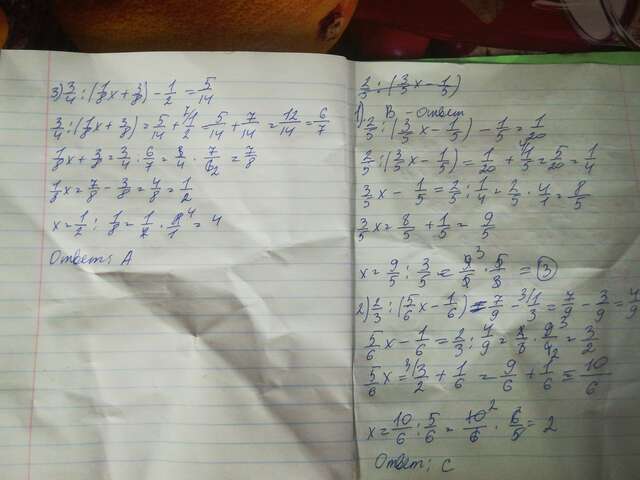 3) 3/4 : (1/8 x + 3/8) - 1/2 = 5/14
3/4 : (1/8 x + 3/8) = 5/14 + 7/1/2 = 5/14 + 7/14 = 12/14 = 6/7
1/8 x + 3/8 = 3/4 : 6/7 = 3/4 · 7/6 2 = 7/8
1/8 x = 7/8 - 3/8 = 4/8 = 1/2
x = 1/2 : 1/8 = 1/2 · 8 4/1 = 4
Ответ: А
2/5 : (3/5 x - 1/5)
1) В - ответ
2/5 : (3/5 x - 1/5) - 1/5 = 1/20
2/5 : (3/5 x - 1/5) = 1/20 + 4/1/5 = 5/20 = 1/4
3/5 x - 1/5 = 2/5 : 1/4 = 2/5 · 4/1 = 8/5
3/5 x = 8/5 + 1/5 = 9/5
x = 9/5 : 3/5 = 9 3/5 · 5/3 = 3
2) 2/3 : (5/6 x - 1/6) = 7/9 - 3/1/3 = 7/9 - 3/9 = 4/9
5/6 x - 1/6 = 2/3 : 4/9 = 2/3 · 9 3/4 2 = 3/2
5/6 x = 3/3/2 + 1/6 = 9/6 + 1/6 = 10/6
x = 10/6 : 5/6 = 10 2/6 · 6/5 = 2
Ответ: С